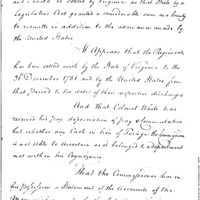 and should be settled by Virginia as that State by a
Legislative Act granted a considerable sum as a bounty
to recruits in addition to the allowance made by
the United States.
It Appears that the Regiment
has been settled with by the State of Virginia to the
31st December 1781 and by the United States from
that period to the dates of their respective discharges
And that Colonel White has
received his pay, depreciation of pay & Commutation
but whether any Cash in lieu of Forage the Commissioner
is not able to Ascertain as it belonged to a department
not within his Cognizance.
That the Commissioner has in
his possession a Statement of the Accounts of the